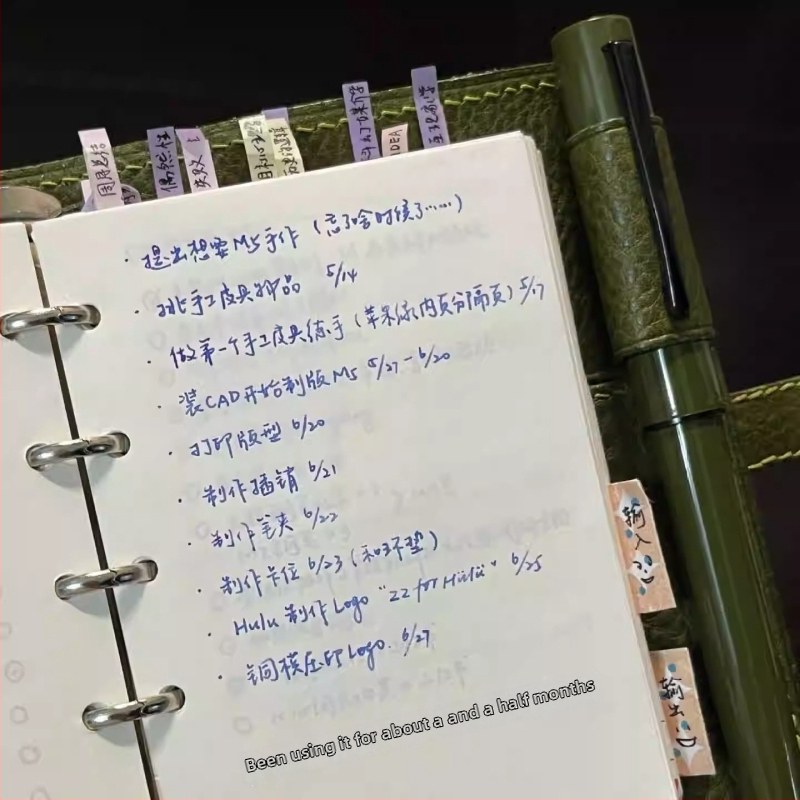 周月总结
偶然性
失败
IDEA
· 提出想要M5手作（忘了啥时候了……）
· 挑手工皮具物品 5/14
· 做第一个手工皮具练手（苹果绿内页分隔页）5/17
· 装CAD开始制版M5 5/27-6/20
· 打印版型 6/20
· 制作插销 6/21
· 制作笔夹 6/22
· 制作卡位 6/23（和环垫）
· Hulu 制作Logo “ZZ for Hulu” 6/25
· 铜模压印Logo. 6/27
输入
输出
Been using it for about a and a half months